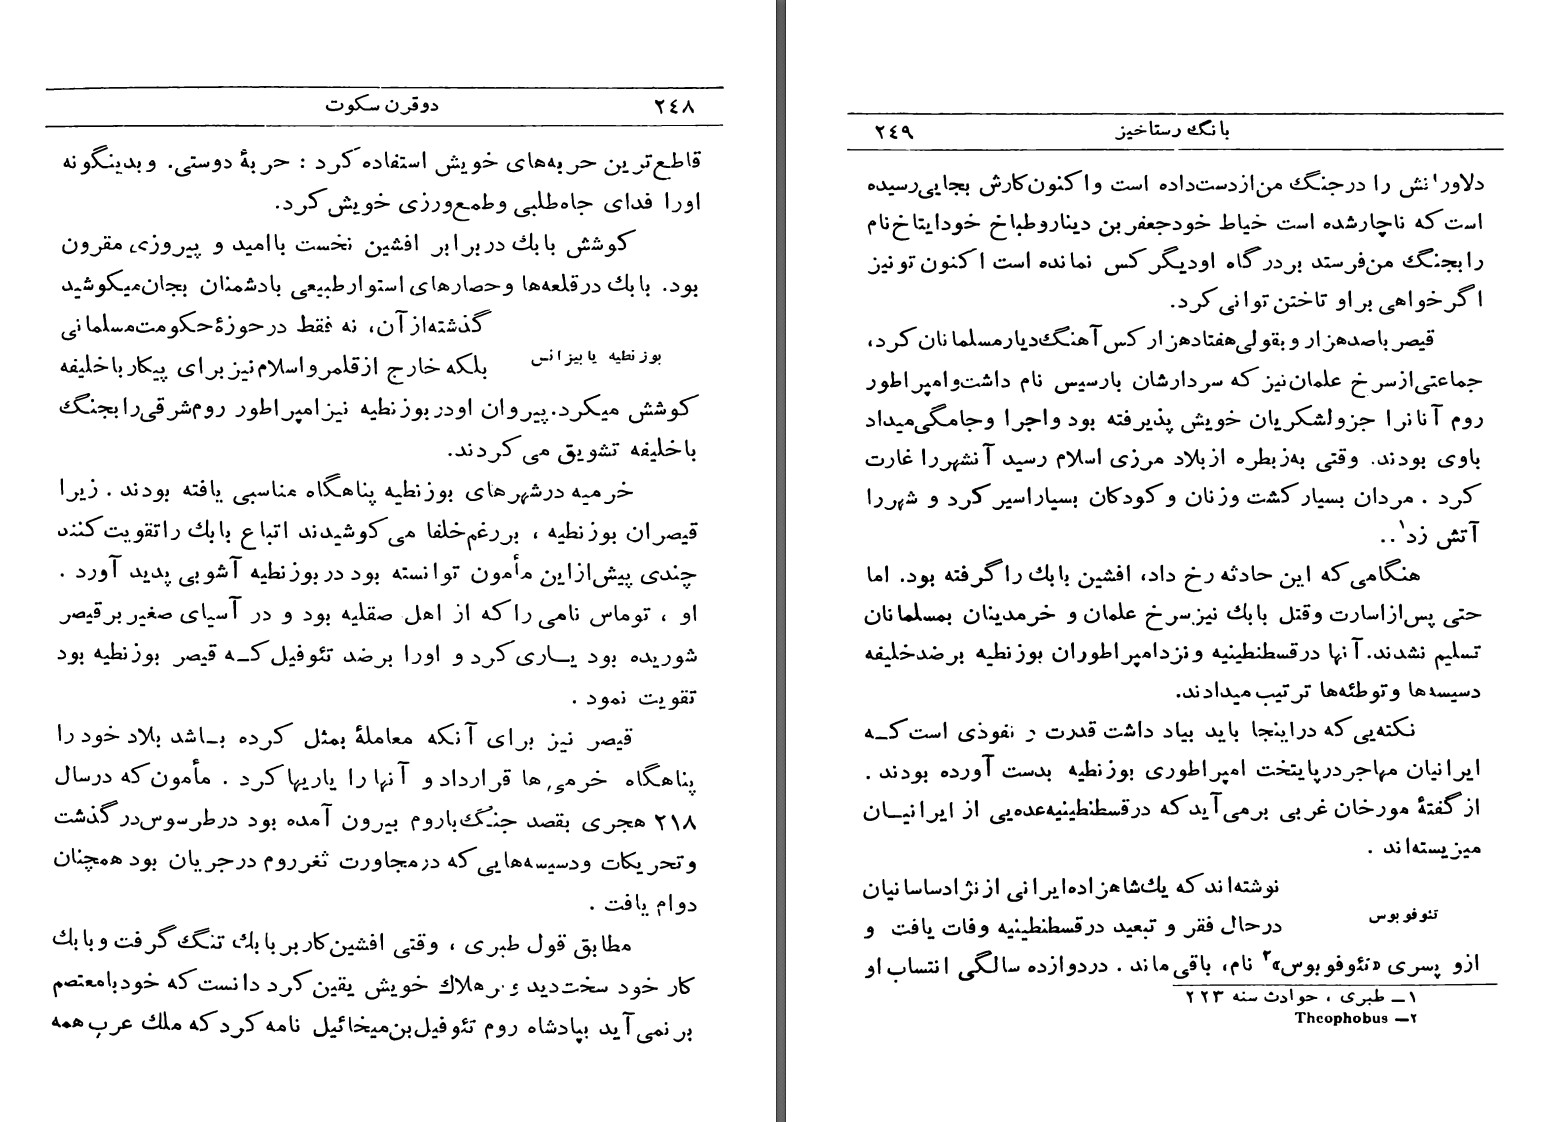 دو قرن سکوت
۲٤۸
قاطع‌ترین حربه‌های خویش استفاده کرد : حربهٔ دوستی. و بدینگونه
اورا فدای جاه‌طلبی وطمع‌ورزی خویش کرد.
کوشش بابك دربرابر افشین نخست باامید و پیروزی مقرون
بود. بابك درقلعه‌ها وحصارهای استوارطبیعی بادشمنان بجان‌میکوشید
گذشته‌ازآن، نه فقط درحوزهٔ‌حکومت‌مسلمانی
بوزنطیه یا بیزانس
بلکه خارج ازقلمرواسلام نیز برای پیکار باخلیفه
کوشش میکرد. پیروان اودربوزنطیه نیز امپراطور روم‌شرقی‌را بجنگ
باخلیفه تشویق می‌کردند.
خرمیه درشهرهای بوزنطیه پناهگاه مناسبی یافته بودند . زیرا
قیصران بوزنطیه ، بررغم‌خلفا می‌کوشیدند اتباع بابك راتقویت‌کنند
چندی پیش‌ازاین مأمون توانسته بود دربوزنطیه آشوبی پدید آورد .
او ، توماس نامی را که از اهل صقلیه بود و در آسیای صغیر برقیصر
شوریده بود یــاری کرد و اورا برضد تئوفیل کــه قیصر بوزنطیه بود
تقویت نمود .
قیصر نیز برای آنکه معاملهٔ بمثل کرده بــاشد بلاد خود را
پناهگاه خرمی‌ها قرارداد و آنها را یاریها کرد . مأمون که درسال
۲۱۸ هجری بقصد جنگ‌باروم بیرون آمده بود درطرسوس‌درگذشت
و تحریکات ودسیسه‌هایی که درمجاورت ثغرروم درجریان بود همچنان
دوام یافت .
مطابق قول طبری ، وقتی افشین‌کاربر بابك تنگ گرفت و بابك
کار خود سخت‌دید و بر هلاك خویش یقین کرد دانست که خود بامعتصم
برنمی‌آید بپادشاه روم تئوفیل‌بن‌میخائیل نامه کرد که ملك عرب همه
بانگ رستاخیز
۲٤۹
دلاورانش را درجنگ من‌ازدست‌داده است واکنون‌کارش بجایی‌رسیده
است که ناچارشده است خیاط خودجعفربن دینار وطباخ خودایتاخ‌نام
را بجنگ من‌فرستد بردرگاه اودیگرکس نمانده است اکنون تونیز
اگرخواهی براو تاختن توانی کرد.
قیصر باصدهزار و بقولی‌هفتادهزارکس آهنگ‌دیارمسلمانان کرد،
جماعتی‌ازسرخ علمان‌نیز که سردارشان بارسیس نام داشت‌وامپراطور
روم آنانرا جزولشکریان خویش پذیرفته بود واجرا وجامگی‌میداد
باوی بودند. وقتی به‌زبطره ازبلاد مرزی اسلام رسید آنشهررا غارت
کرد . مردان بسیارکشت وزنان و کودکان بسیاراسیرکرد و شهررا
آتش زد۱..
هنگامی که این حادثه رخ داد، افشین بابك راگرفته بود. اما
حتی پس‌ازاسارت وقتل بابك نیزسرخ علمان و خرمدینان بمسلمانان
تسلیم نشدند. آنها درقسطنطینیه ونزدامپراطوران بوزنطیه برضدخلیفه
دسیسه‌ها وتوطئه‌ها ترتیب میدادند.
نکته‌یی که دراینجا باید بیاد داشت قدرت و نفوذی است کــه
ایرانیان مهاجردرپایتخت امپراطوری بوزنطیه بدست آورده بودند .
ازگفتهٔ مورخان غربی برمی‌آید که درقسطنطینیه‌عده‌یی از ایرانیــان
میزیسته‌اند .
نوشته‌اند که یك‌شاهزاده‌ایرانی ازنژادساسانیان
تئوفوبوس
درحال فقر و تبعید درقسطنطینیه وفات یافت و
ازو پسری «تئوفوبوس»۲ نام، باقی‌ماند . دردوازده سالگی انتساب او
۱ــ طبری ، حوادث سنه ۲۲۳
۲ــ Theophobus